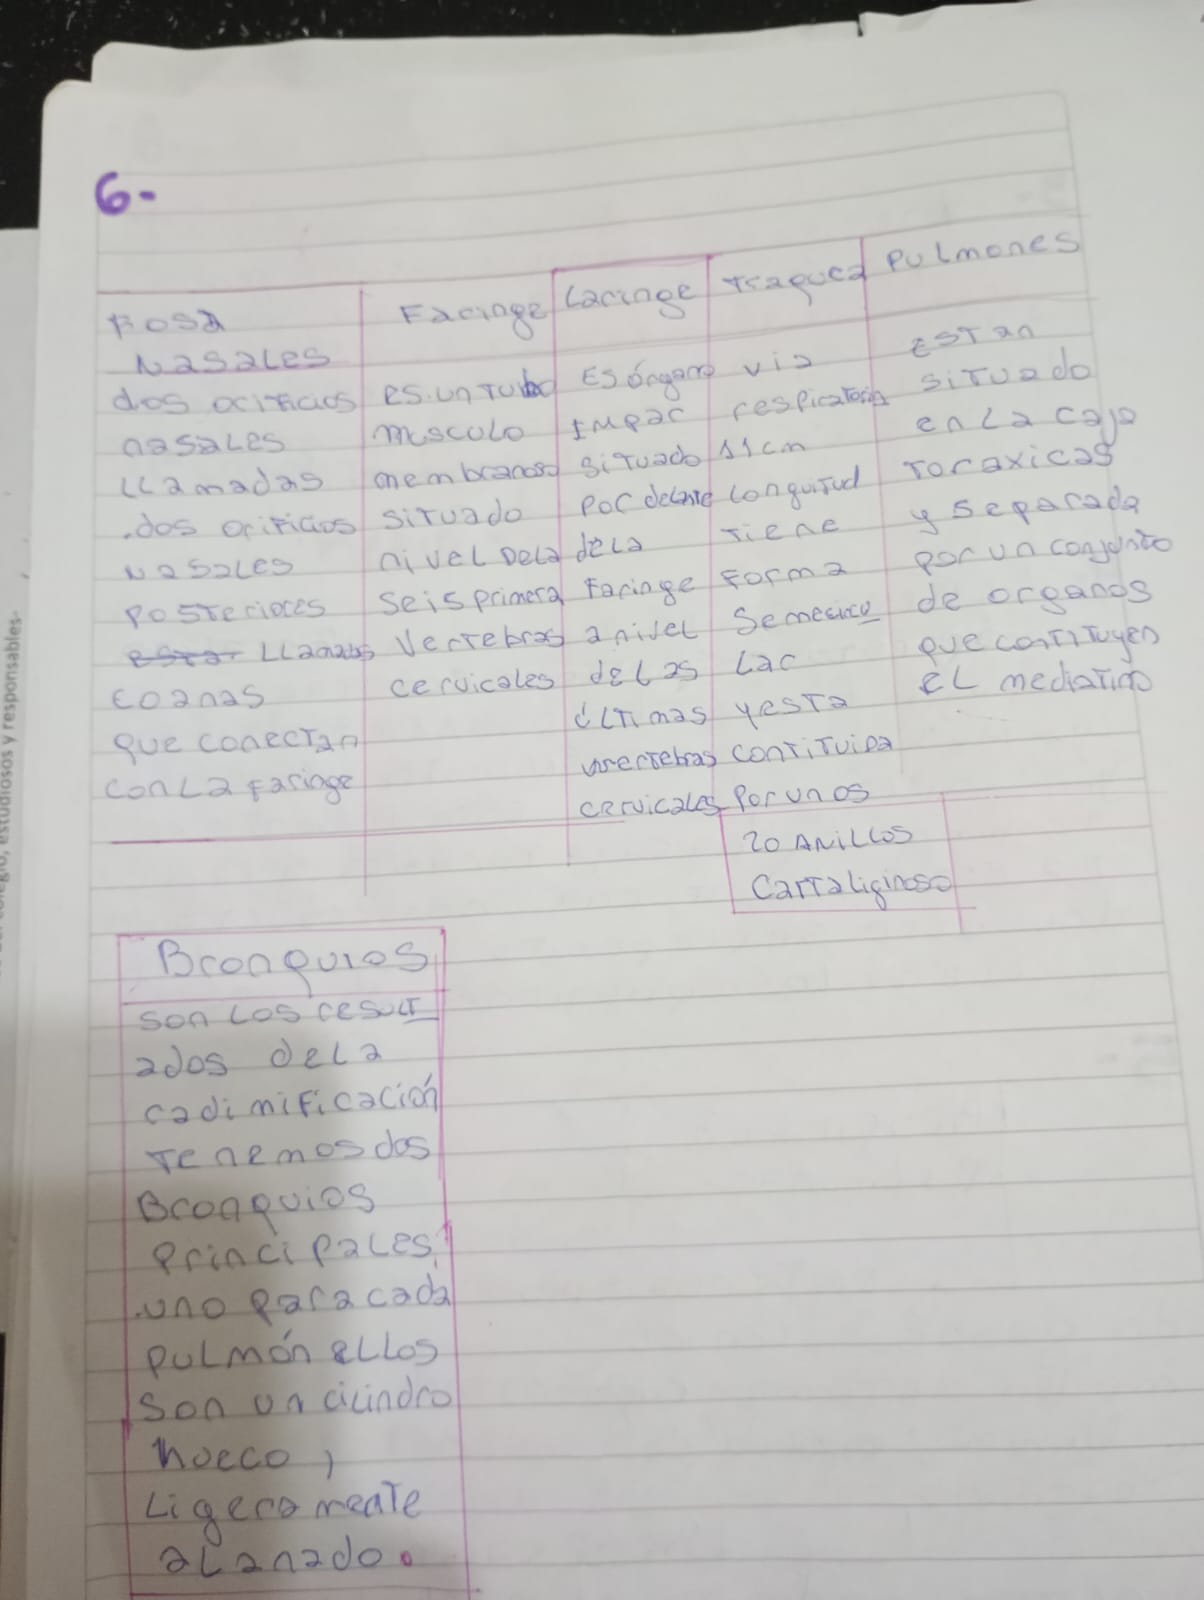 6-
Fosa
Nasales
dos orificios
nasales
LLamadas
.dos orificios
Nasales
Posteriores
LLamadas
coanas
que conectan
con La Faringe
Faringe
es un Tubo
musculo
membranoso
situado
nivel DeLa
seis primera
Vertebras
cervicales
Laringe
Es órgano
Impar
situado
Por delante
de La
Faringe
a nivel
de Las
últimas
vertebras
cervicales
Traquea
via
respiratoria
11cm
Longuitud
Tiene
Forma
Semecircu
Lar
y esTa
conTiTuida
Por unos
20 ANiLLOS
Cartaliginoso
PuLmones
ESTan
siTuado
en La caja
Toraxicas
y separada
por un conjunto
de organos
que conTiTuyen
EL mediaTino
Bronquios
son Los resuLT
ados deLa
radimificación
Tenemos dos
Bronquios
Principales
.uno para cada
pulmón ellos
son un cicindro
hueco,
Ligeramente
aLanado.
colegio, estudiosos y responsables-